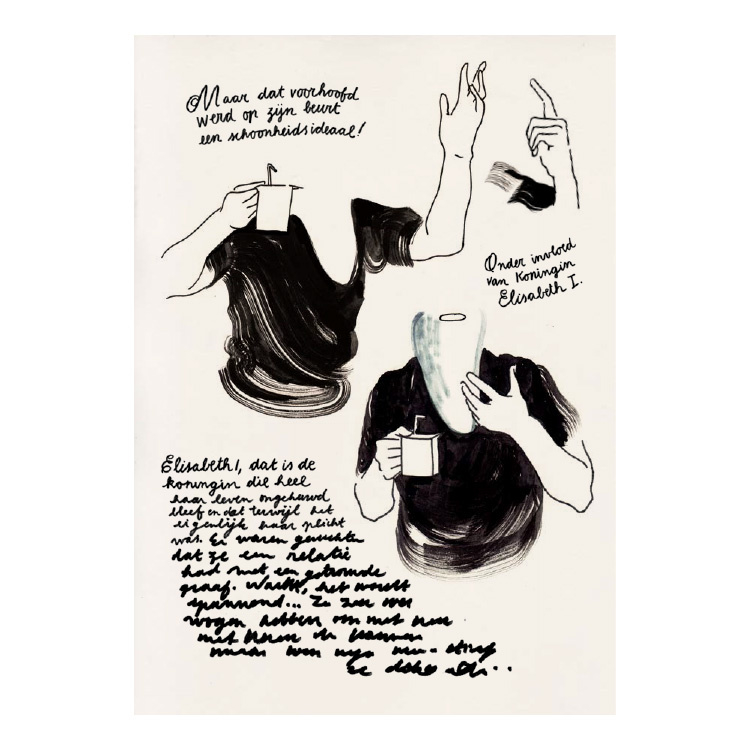 Maar dat voorhoofd
werd op zijn beurt
een schoonheidsideaal!
Onder invloed
van koningin
Elisabeth I.
Elisabeth I, dat is de
koningin die heel
haar leven ongehuwd
bleef en dat terwijl het
eigenlijk haar plicht
was. Er waren geruchten
dat ze een relatie
had met een getrouwde
graaf. Wacht, het wordt
spannend... Ze zou
hebben om met hem
met